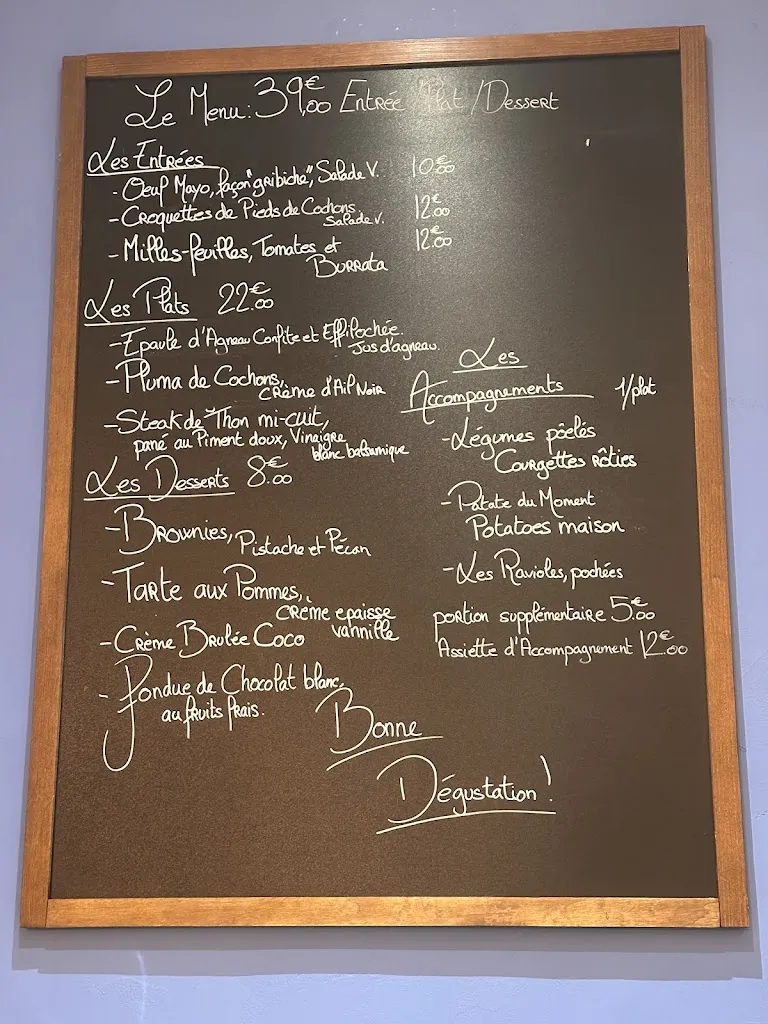 Le Menu: 39,00€ Entrée / Plat / Dessert
Les Entrées
- Oeuf Mayo, façon "gribiche", Salade V. 10€00
- Croquettes de Pieds de Cochons, 12€00
Salade V.
- Milles-feuilles, Tomates et 12€00
Burrata
Les Plats 22€00
- Epaule d'Agneau Confite et Effilochée.
Jus d'agneau.
- Pluma de Cochons,
Crème d'Ail Noir
- Steak de Thon mi-cuit,
pané au Piment doux, Vinaigre
blanc balsamique
Les Desserts 8€00
- Brownies,
Pistache et Pécan
- Tarte aux Pommes,
crème epaisse
vannille
- Crème Brulée Coco
- Fondue de Chocolat blanc,
au fruits frais.
Les
Accompagnements 1/plat
- Légumes pôelés
Courgettes rôties
- Patate du Moment
Potatoes maison
- Les Ravioles, pochées
portion supplémentaire 5€00
Assiette d'Accompagnement 12€00
Bonne
Dégustation!